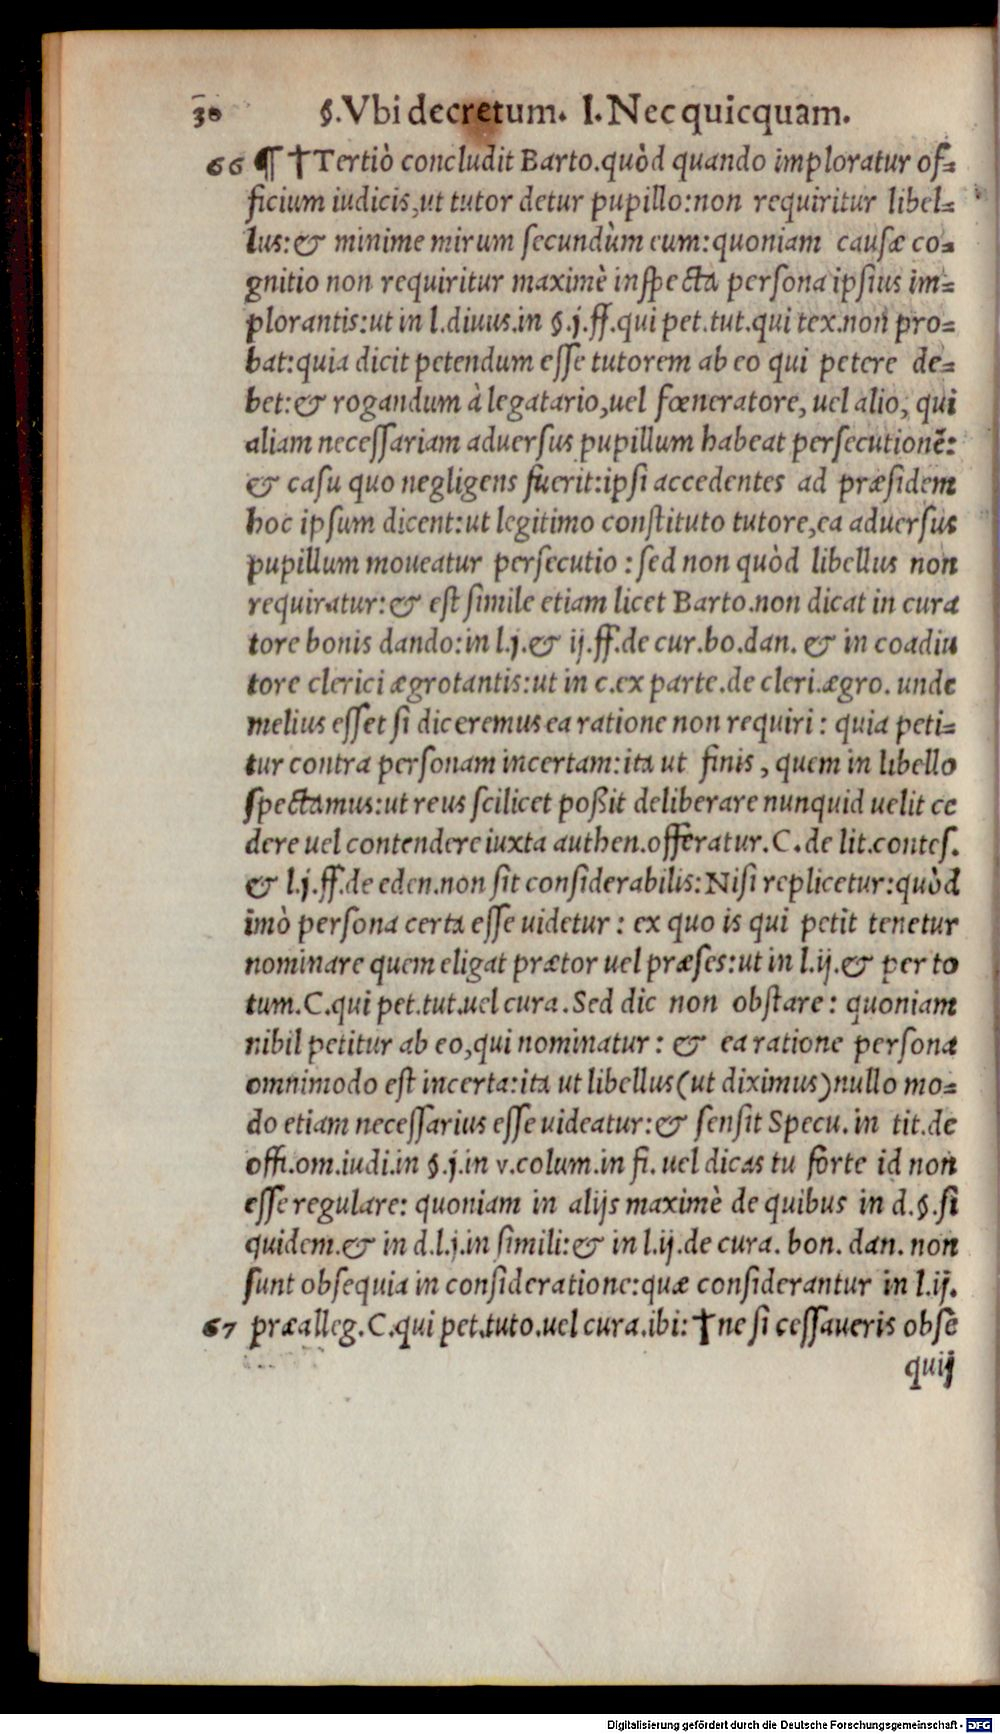 30 §. Vbi decretum. I. Nec quicquam.
66 ¶ †Tertiò concludit Barto. quòd quando imploratur of=
ficium iudicis, ut tutor detur pupillo: non requiritur libel=
lus: & minime mirum secundùm eum: quoniam causæ co=
gnitio non requiritur maximè inspecta persona ipsius im=
plorantis: ut in l. diuus. in §. j. ff. qui pet. tut. qui tex. non pro=
bat: quia dicit petendum esse tutorem ab eo qui petere de=
bet: & rogandum à legatario, uel fœneratore, uel alio, qui
aliam necessariam aduersus pupillum habeat persecutionē:
& casu quo negligens fuerit: ipsi accedentes ad præsidem
hoc ipsum dicent: ut legitimo constituto tutore, ea aduersus
pupillum moueatur persecutio: sed non quòd libellus non
requiratur: & est simile etiam licet Barto. non dicat in cura
tore bonis dando: in l. j. & ij. ff. de cur. bo. dan. & in coadiu
tore clerici ægrotantis: ut in c. ex parte. de cleri. ægro. unde
melius esset si diceremus ea ratione non requiri: quia peti=
tur contra personam incertam: ita ut finis, quem in libello
spectamus: ut reus scilicet poßit deliberare nunquid uelit ce
dere uel contendere iuxta authen. offeratur. C. de lit. contes.
& l. j. ff. de eden. non sit considerabilis: Nisi replicetur: quòd
imò persona certa esse uidetur: ex quo is qui petit tenetur
nominare quem eligat prætor uel præses: ut in l. ij. & per to
tum. C. qui pet. tut. uel cura. Sed dic non obstare: quoniam
nihil petitur ab eo, qui nominatur: & ea ratione persona
omnimodo est incerta: ita ut libellus (ut diximus) nullo mo=
do etiam necessarius esse uideatur: & sensit Specu. in tit. de
offi. om. iudi. in §. j. in v. colum. in fi. uel dicas tu forte id non
esse regulare: quoniam in alijs maximè de quibus in d. §. si
quidem. & in d. l. j. in simili: & in l. ij. de cura. bon. dan. non
sunt obsequia in consideratione: quæ considerantur in l. ij.
67 præalleg. C. qui pet. tuto. uel cura. ibi: †ne si cessaueris obse
quij
Digitalisierung gefördert durch die Deutsche Forschungsgemeinschaft - DFG